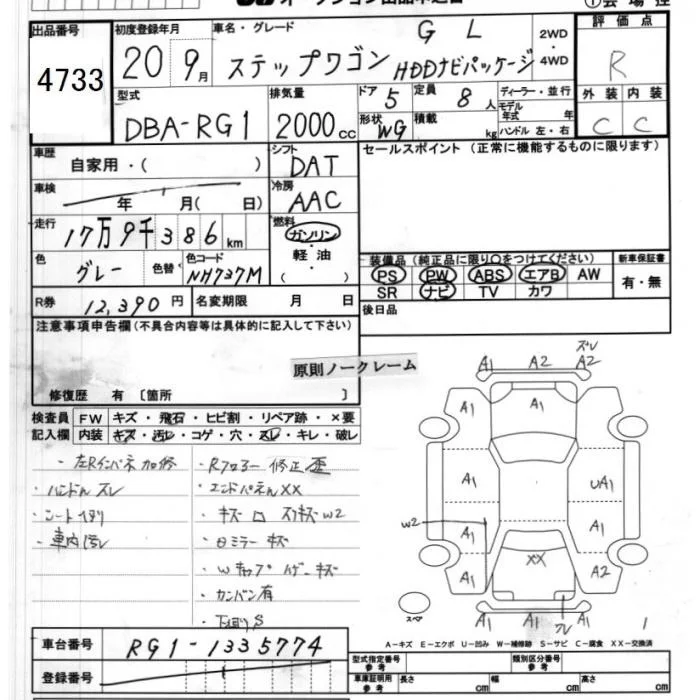 出品番号
4733
初度登録年月
20 9月
車名・グレード
GL
ステップワゴン HDDナビパッケージ
2WD
・
4WD
評価点
R
外装 内装
C C
型式
DBA-RG1
排気量
2000cc
ドア 5
定員 8人
形状 WG
積載 kg
ディーラー・並行
モデル年式 年
ハンドル 左・右
車歴
自家用・( )
シフト
DAT
セールスポイント(正常に機能するものに限ります)
車検
年 月( 日)
冷房
AAC
走行
17万9千386km
燃料
ガソリン
・
軽油
・
( )
色
グレー
色替
色コード
NH737M
装備品(純正品に限り○をつけてください)
PS PW ABS エアB AW
SR ナビ TV カワ
新車保証書
有・無
R券
12,390円
名変期限 月 日
後日品
注意事項申告欄(不具合内容等は具体的に記入して下さい)
原則ノークレーム
修復歴 有 〔箇所 〕
検査員
記入欄
FW キズ・飛石・ヒビ割・リペア跡・×要
内装 キズ・汚レ・コゲ・穴・スレ・キレ・破レ
・左Rインパネ加修
・ハンドルスレ
・シートイタリ
・車内汚レ
・Rフロアー修正歪
・エンドパネルXX
・キズ
W2
・ロミラーキズ
・カンバン有
・下廻りS
ズレ
A1 A2 A2
A1 A1
A1 UA1
W2 A1 A1
XX
A1 A2
A1 A1 A1
スペア
A-キズ E-エクボ U-凹み W-補修跡 S-サビ C-腐食 XX-交換済
車台番号
RG1-1335774
登録番号
型式指定番号
参考
類別区分番号
参考
車庫証明用
参考
長さ cm 幅 cm 高さ cm